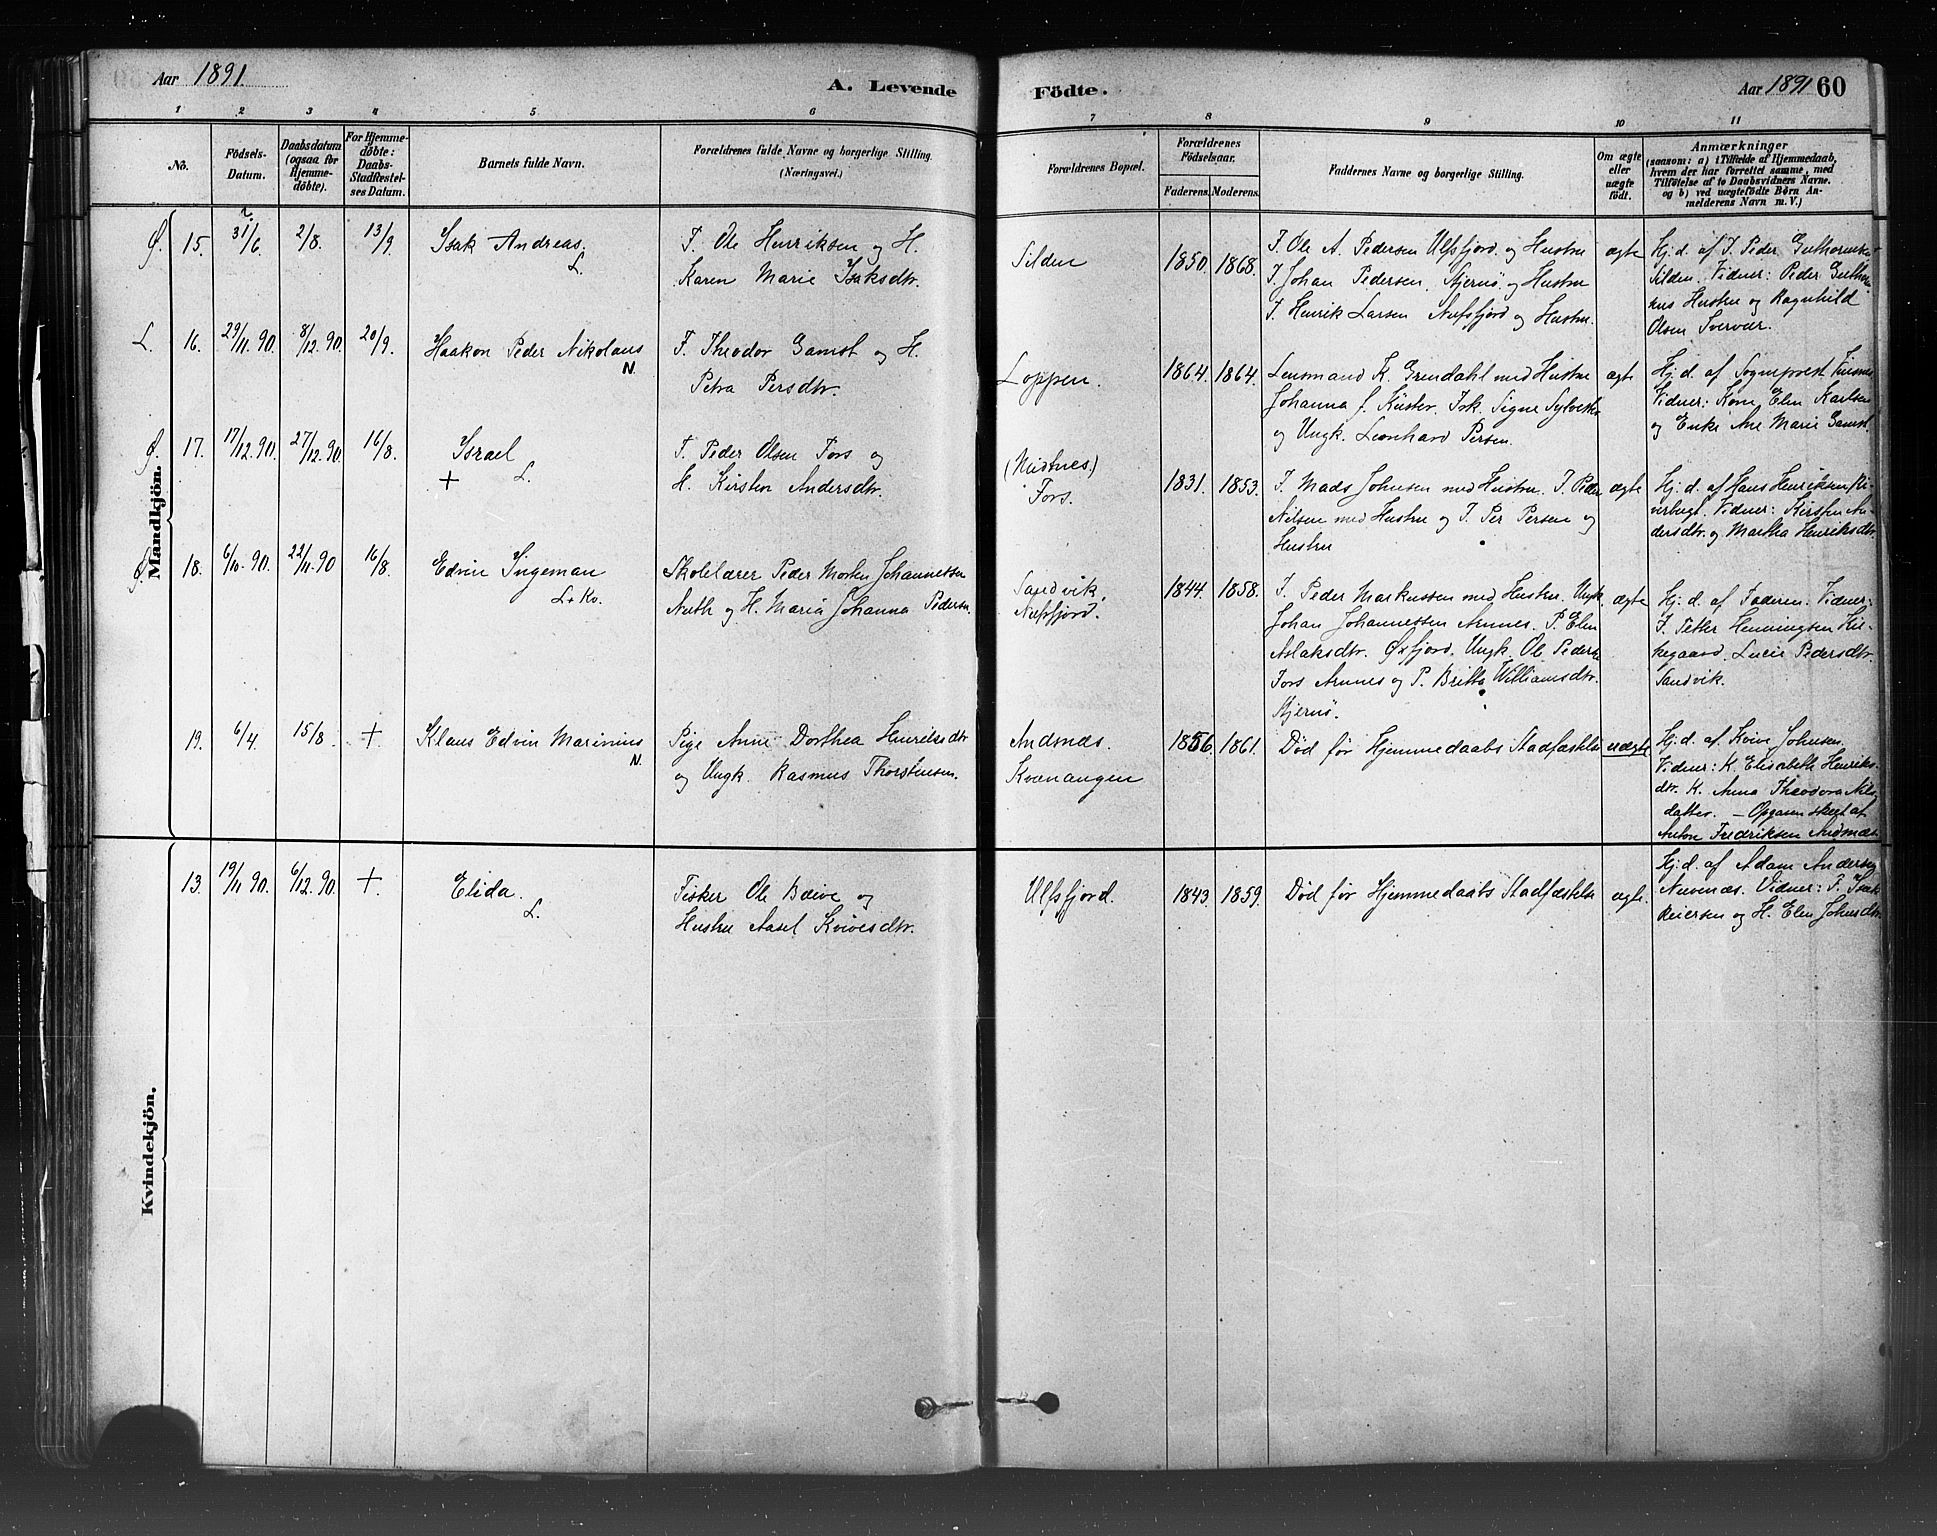 Aar 1891.
A. Levende
Födte.
Aar 1891 60
1 2 3 4 5 6 7 8 9 10 11
No.
Födsels-
Datum.
Daabsdatum
(ogsaa for
Hjemme-
döbte).
For Hjemme-
döbte:
Daabs-
Stadfæstel-
ses Datum.
Barnets fulde Navn.
Forældrenes fulde Navne og borgerlige Stilling.
(Næringsvei.)
Forældrenes Bopæl.
Forældrenes
Födselsaar.
Faderens. Moderens.
Faddernes Navne og borgerlige Stilling.
Om ægte
eller
uægte
födt.
Anmærkninger
(saasom: a) i Tilfælde af Hjemmedaab,
hvem der har forrettet samme, med
Tilföielse af to Daabsvidners Navne.
og b) ved uægtefödte Börn An-
melderens Navn m. V.)
Mandkjön.
Ø. 15. 31/6 ? 2/8. 13/9
Isak Andreas.
L.
F. Ole Henriksen og H.
Karen Marie Isaksdtr.
Silden
1850. 1868.
F. Ole A. Pedersen Ulfsfjord og Hustru
F. Johan Pedersen, Stjernø, og Hustru
F. Henrik Larsen Nufsfjord og Hustru.
ægte
Hj. d. af F. Peder
Silden. Vidner: Peder
Hustru og Ragnhild
Olsen
L. 16. 29/11. 90. 8/12. 90. 20/9.
Haakon Peder Nikolaus
N.
F. Theodor Gamst og H.
Petra Persdtr.
Loppen.
1864. 1864.
Lensmand K. Grendahl med Hustru
Johanna f. Küster. Frk. Signe
og Ungk. Leonhard Persen.
ægte
Hj. d. af Sogneprest
Vidner: Kone Elen Karlsen
og Enke Ane Marie Gamst.
Ø. 17. 17/12. 90. 27/12. 90. 16/8.
Israel
+ L.
F. Peder Olsen Fors og
H. Kirsten Andersdtr.
Fors.
1831. 1853.
F. Mads Johnsen med Hustru. F. Peder
Nilsen med Hustru og F. Per Persen og
Hustru
ægte
Hj. d. af Hans Henriksen
Vidner: Kirsten An-
dersdtr. og Martha Henriksdtr.
Ø. 18. 6/10. 90. 22/11. 90 16/8.
Edvin Ingeman
L + Kv.
Skolelærer Peder Morten Johannessen
og H. Maria Johanna Pedersen.
Sandvik,
Nufsfjord.
1844. 1858.
F. Peder Markussen med Hustru. Ungk.
Johan Johannessen Arnnes. P. Elen
Aslaksdtr. Øxfjord. Ungk. Ole Peders
Fors Arnnes og P. Britta Williamsdtr.
Stjernø.
ægte
Hj. d. af Faderen. Vidner:
F. Petter Henningsen Kir-
kegaard, Lucie Pedersdtr.
Sandvik.
19. 6/4. 15/8. +
Klaus Edvin Marinius
N.
Pige Anne Dorthea Henriksdtr.
og Ungk. Rasmus Thorstensen.
Andsnæs.
Kvænangen
1856. 1861.
Død før Hjemmedaabs Stadfæstelse
uægte
Hj. d. af Johnsen.
Vidner: K. Elisabeth Henriks-
dtr. K. Anna Theodora Nils-
datter. — Opgaven skeet af
Anton Fredriksen Andsnæs.
Kvindekjön.
13. 19/11. 90. 6/12. 90. +
Elida.
L.
Fisker Ole Bæive og
Hustru Aasel Kvivesdtr.
Ulfsfjord.
1843. 1859.
Død før Hjemmedaabs Stadfæstelse
ægte.
Hj. d. af Adam Andersen
Vidner: P. Isak
Reiersen og H. Elen Johnsdtr.